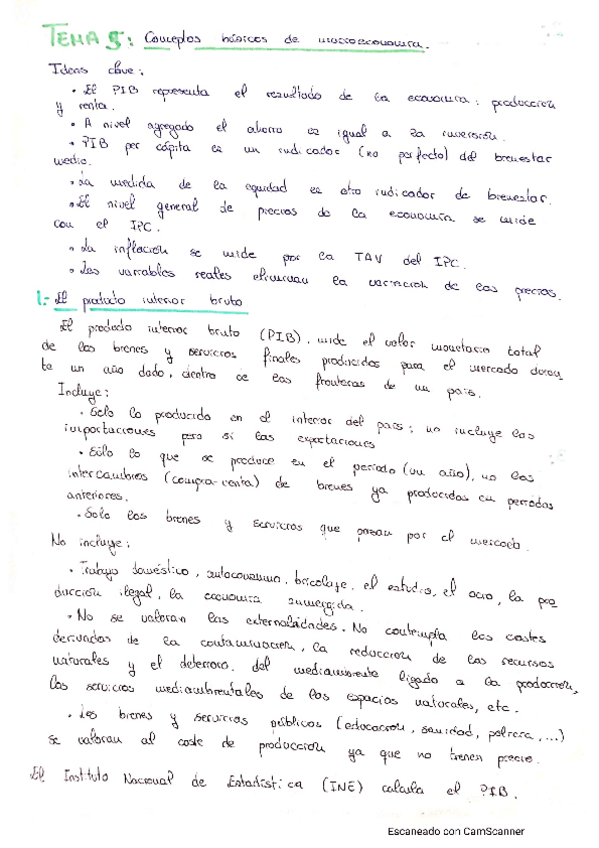 TEMA 5: Conceptos básicos de macroeconomía.
Ideas clave:
• El PIB representa el resultado de la economía: producción
y renta.
• A nivel agregado el ahorro es igual a la inversión.
• PIB per cápita es un indicador (no perfecto) del bienestar
medio.
• La medida de la equidad es otro indicador de bienestar.
• El nivel general de precios de la economía se mide
con el IPC.
• La inflación se mide por la TAV del IPC.
• Las variables reales eliminan la variación de los precios.
1.- El producto interior bruto
El producto interior bruto (PIB), mide el valor monetario total
de los bienes y servicios finales producidos para el mercado duran
te un año dado, dentro de las fronteras de un país.
Incluye:
• Solo lo producido en el interior del país; no incluye las
importaciones pero si las exportaciones
• Sólo lo que se produce en el periodo (un año), no los
intercambios (compra-venta) de bienes ya producidos en periodos
anteriores.
• Solo los bienes y servicios que pasan por el mercado.
No incluye:
• Trabajo doméstico, autoconsumo, bricolaje, el estudio, el ocio, la pro
ducción ilegal, la economía sumergida.
• No se valoran las externalidades. No contempla los costes
derivados de la contaminación, la reducción de los recursos
naturales y el deterioro del medioambiente ligado a la producción,
los servicios medioambientales de los espacios naturales, etc.
• Los bienes y servicios públicos (educación, sanidad, policía, ...)
se valoran al coste de producción ya que no tienen precio.
El Instituto Nacional de Estadística (INE) calcula el PIB.
Escaneado con CamScanner